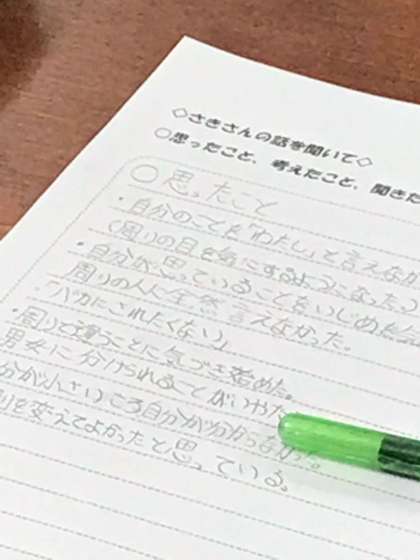 ◇さきさんの話を聞いて◇
○思ったこと、考えたこと、聞きた
○思ったこと
・自分のことを「わたし」と言えな
(周りの目を気にするようになった
・自分が思っていることをいじめ
周りの人に全然言えなかった。
「バカにされたくない」
・周りで違うことに気づき始めた。
男女に分けられることがいやだ
分が小さいころ自分が分からなかった。
りを変えてよかったと思っている。